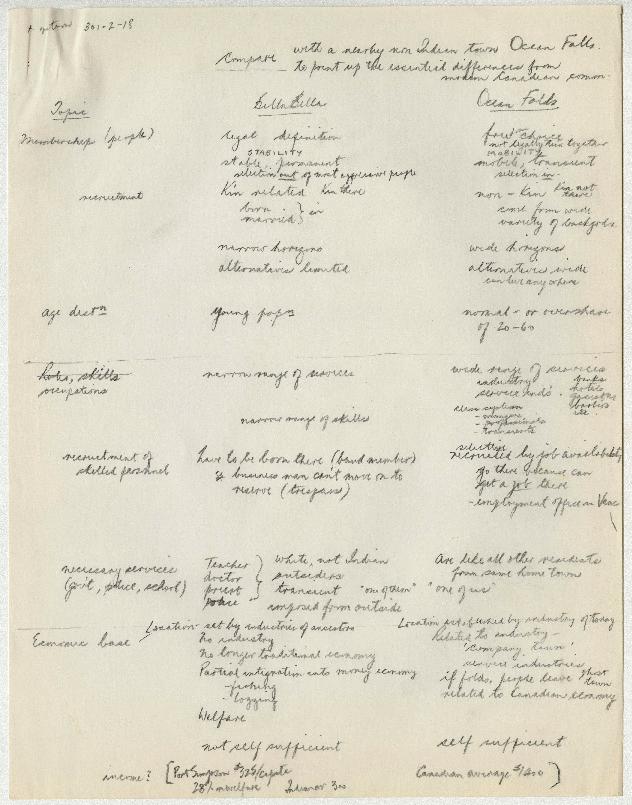 301-2-18
Compare with a nearby non Indian town Ocean Falls.
to point up the essential differences from
modern Canadian comm.
Topic Bella Bella Ocean Falls
Membership (people) legal definition free choice
not legally kin together
STABILITY MOBILITY
stable, permanent mobile, transient
selection out of most aggressive people selection in
recruitment Kin related Kin there non-Kin Kin not there
born } in come from wide
married variety of backgds
narrow horizons wide horizons
alternatives limited alternatives wide
can live anywhere
age distn young popn normal - or overshare
of 20-60
Jobs, skills narrow range of services wide range of services
occupations industry banks
service inds. hotels
barbers
etc.
narrow range of skills class system
- managers
- professionals
- transients
selective
recruitment of have to be born there (band member) recruited by job availability
skilled personnel & business man can't move on to go there because can
reserve (trespass) get a job there
- employment office in Vanc
necessary services Teacher } white, not Indian are like all other residents
(govt, police, school) doctor outsiders from same home town
priest transient "one of them" "one of us"
police imposed from outside
Economic base Location set by industries of ancestors Location established by industry of today
no industry related to industry -
no longer traditional economy 'company town'
Partial integration into money economy service industries
- fishing if folds, people leave Ghost town
- logging related to Canadian economy
Welfare
not self sufficient self sufficient
income? [Port Simpson $325/capita Canadian average $1400]
28% on welfare Indian av 300